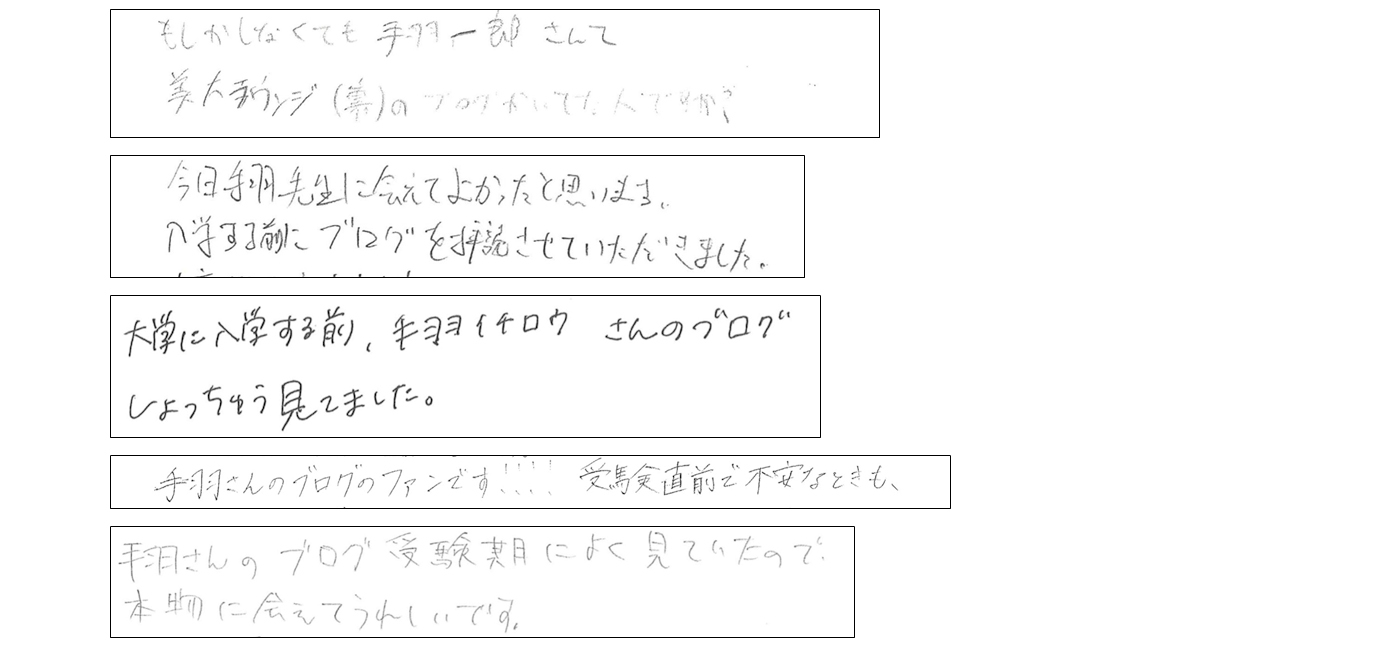 もしかしなくても 手羽一郎 さんて
美大ラウンジ(笑)の ブログかいてた人ですか?
今日手羽先生に会えてよかったと思います。
入学する前にブログを拝読させていただきました。
大学に入学する前、手羽イチロウ さんのブログ
しょっちゅう見てました。
手羽さんのブログのファンです!!!! 受験直前で不安なときも、
手羽さんの ブログ 受験期によく見ていたので
本物に会えてうれしいです。